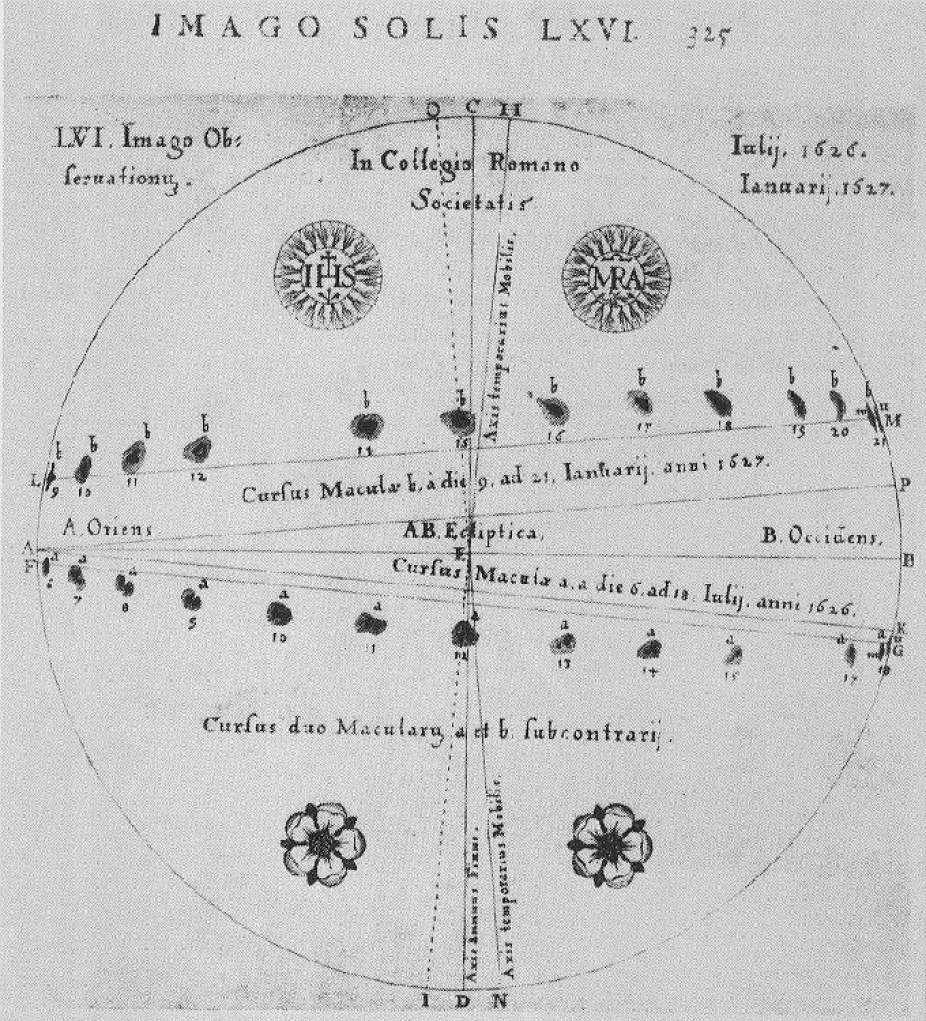 IMAGO SOLIS LXVI. 325
O C H
LVI. Imago Ob:
seruationū.
In Collegio Romano
Societatis
Iulij. 1626.
Ianuarij. 1627.
IHS
MRA
Axis temporarius Mobilis.
b b b b b b b b b b b b
L 9 10 11 12 14 15 16 17 18 19 20 21 m u M
Cursus Maculæ b, à die 9. ad 21. Ianuarij. anni 1627.
P
A. Oriens
AB. Ecliptica.
B. Occidens.
A E B
F
Cursus Maculæ a. a die 6. ad 18. Iulij. anni 1626.
K
a a a a a a a a a a a a
6 7 8 9 10 11 12 13 14 15 17 18 m u G
Cursus duo Macularū a et b subcontrarij.
Axis Annuus Fixus.
Axis temporarius Mobilis.
I D N